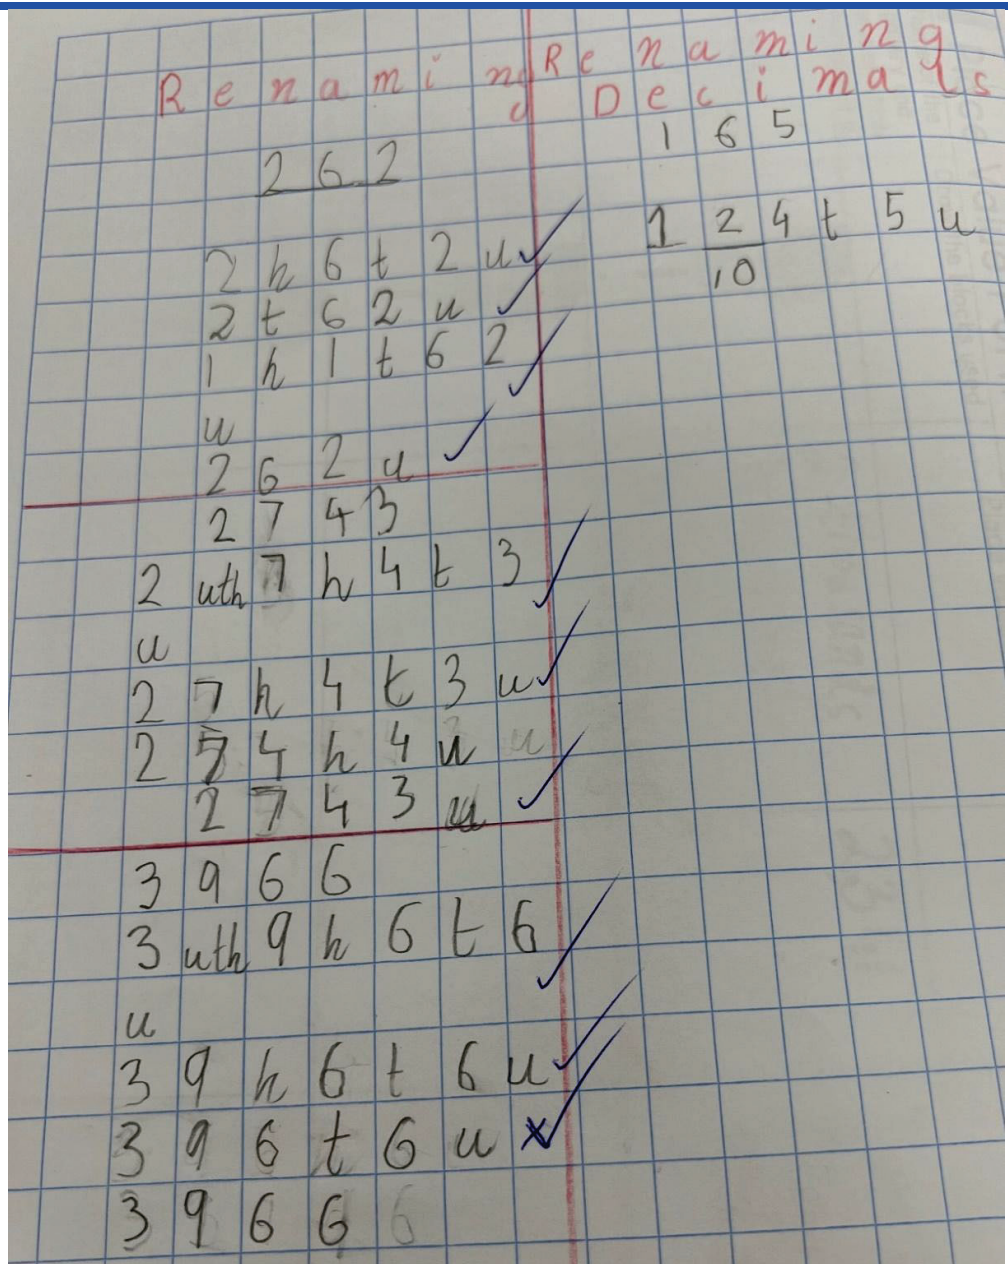 Renaming
262
2h6t2u
2t62u
1h1t62
u
262u
2743
2uth7h4t3
u
27h4t3u
274h4u
2743u
3966
3uth9h6t6
u
39h6t6u
396t6u
3966
Renaming
Decimals
165
1 2/10 4t5u